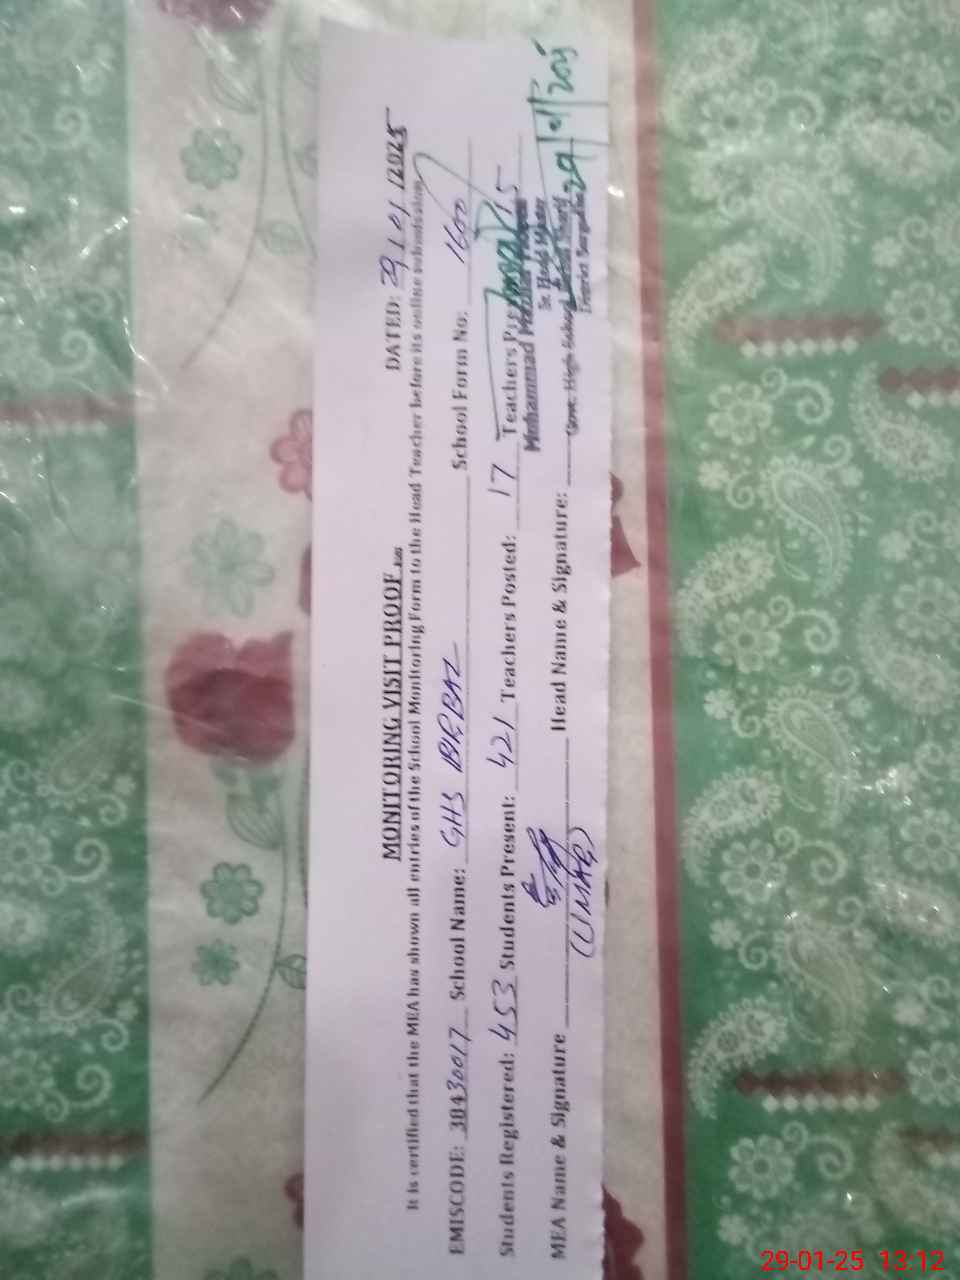 MONITORING VISIT PROOF
DATED: 29/01/2025
It is certified that the MEA has shown all entries of the School Monitoring Form to the Head Teacher before its online submission.
EMISCODE: 38430017 School Name: GHS BIRBAL School Form No: 1600
Students Registered: 453 Students Present: 421 Teachers Posted: 17 Teachers 15
MEA Name & Signature (UMAR) Head Name & Signature:
Muhammad
Govt. High School
District Sargodha
29/01/2025
29-01-25 13:12